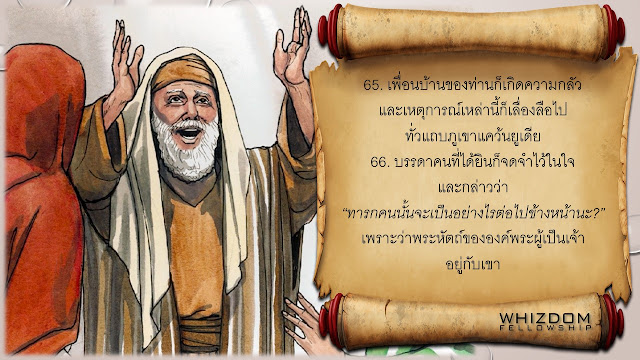 65. เพื่อนบ้านของท่านก็เกิดความกลัว
และเหตุการณ์เหล่านี้ก็เลื่องลือไป
ทั่วแถบภูเขาแคว้นยูเดีย
66. บรรดาคนที่ได้ยินก็จดจำไว้ในใจ
และกล่าวว่า
“ทารกคนนั้นจะเป็นอย่างไรต่อไปข้างหน้านะ?”
เพราะว่าพระหัตถ์ขององค์พระผู้เป็นเจ้า
อยู่กับเขา
WHIZDOM
FELLOWSHIP